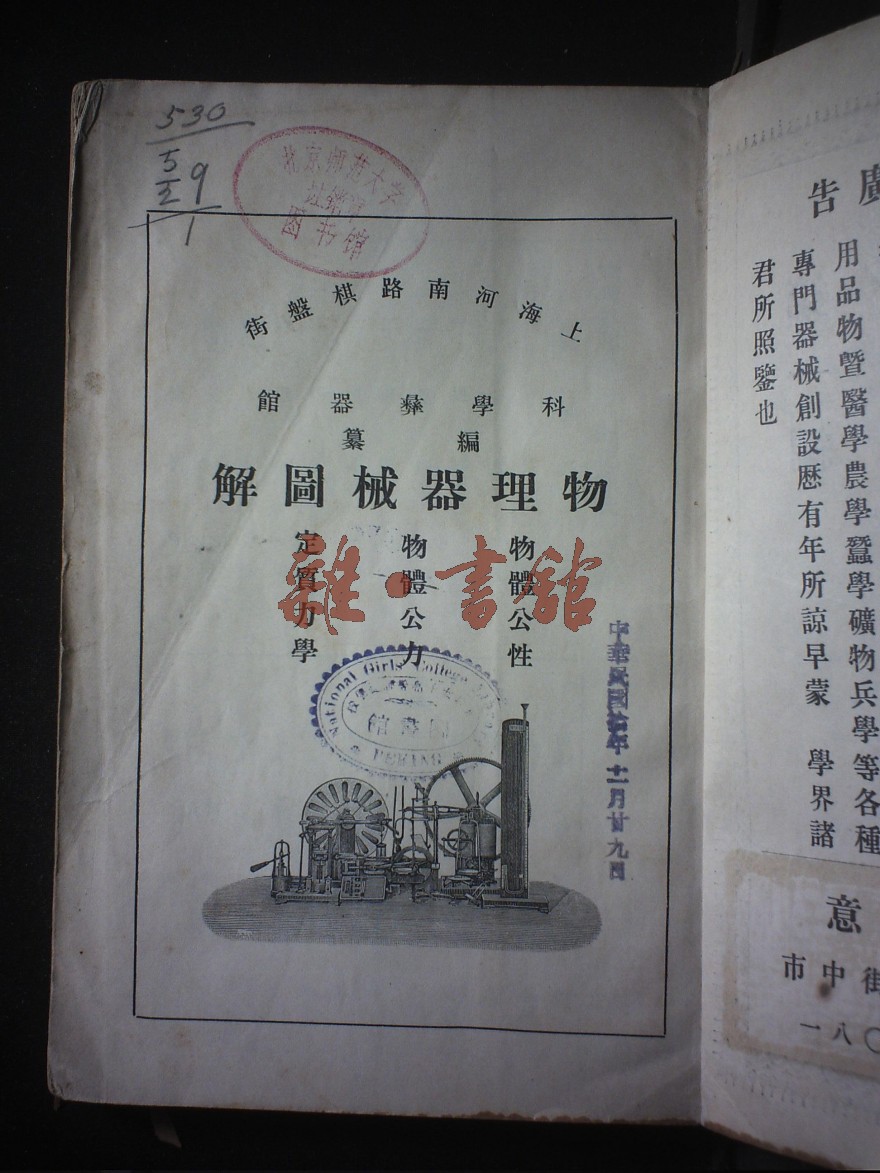 530
5/2 9
1
北京师范大学
注销章
图书馆
上海河南路棋盤街
科學彝器館
編纂
物理器械圖解
物體公性
物體公力
定質力學
雜·書館
National Girls College
圖書館
PEKING
中華民國拾年十一月廿九日
廣告
用品物暨醫學農學蠶學礦物兵學等各種
專門器械創設歷有年所諒早蒙 學界諸
君所照鑒也
意
街中市
一八〇